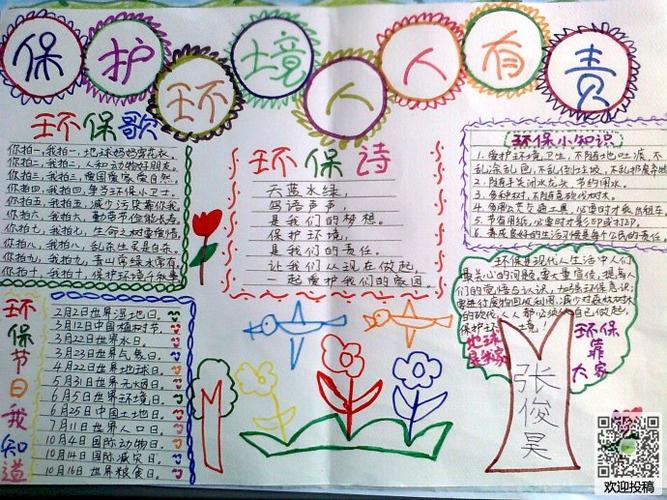 保护环境人人有责
环保歌
你拍一,我拍一,地球妈妈穿花衣。
你拍二,我拍二,人和动物好朋友。
你拍三,我拍三,爱国爱家爱自然。
你拍四,我拍四,争当环保小卫士。
你拍五,我拍五,减少污染靠你我。
你拍六,我拍六,
你拍七,我拍七,生命之树要爱惜。
你拍八,我拍八,乱杀生灵是自杀。
你拍九,我拍九,青山常绿水常有。
你拍十,我拍十,保护环境
环保诗
天蓝水绿,
鸟语声声,
是我们的梦想。
保护环境,
是我们的责任。
让我们从现在做起,
一起爱护我们的家园。
环保小知识
1.爱护环境卫生,不随地吐痰,不
乱涂乱色,不乱倒垃圾,不乱扔废弃物
2.随手关闭水龙头,节约用水。
3.多种树,不随意砍伐树木。
4.多用公共交通工具,必要时才乘出租车
5.节省用纸,必要时才影印或打印。
6.养成良好的生活习惯是每个公民的责任
环保是现代人生活中人们
最关心的问题,要大量宣传,提高人
们的觉悟与认识,加强环保意识;
要进行废物回收利用,减少对森林树木
的砍伐,人人都必须从自己做起,
保护环境!
地球
是我家
环保
靠
大家
张俊昊
环保节日我知道
2月2日世界湿地日。
3月12日中国植树节。
3月22日世界水日。
3月23日世界气象日。
4月22日世界地球日。
5月31日世界无烟日。
6月5日世界环境日。
6月25日中国土地日。
7月11日世界人口日。
10月4日国际动物日。
10月14日国际减灾日。
10月16日世界粮食日。
欢迎投稿